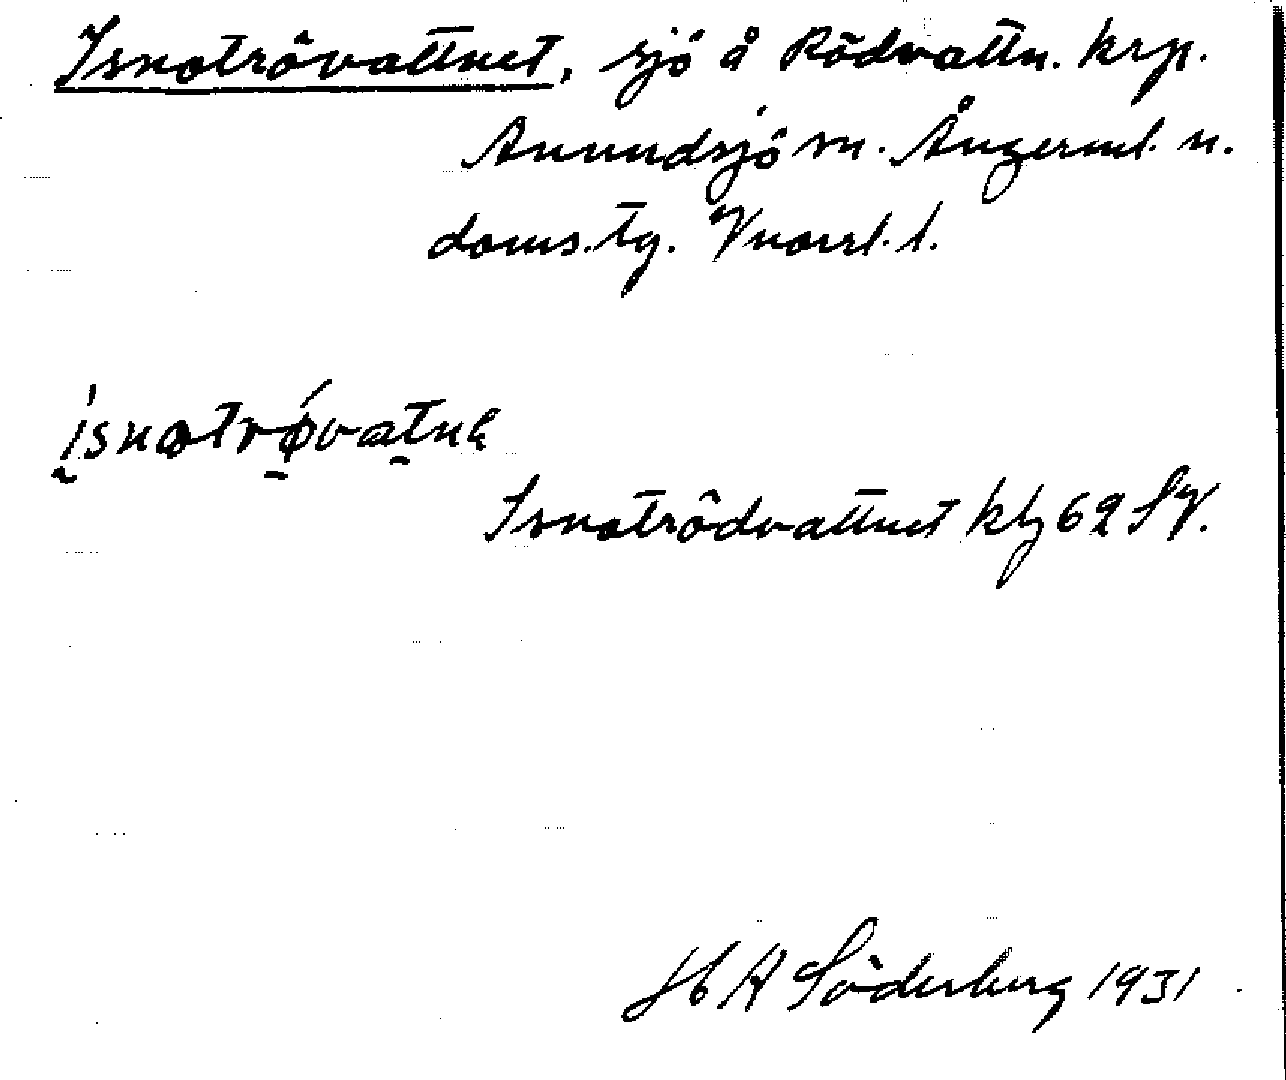 Isnotrövattnet, sjö å Rödvattn. krp.
Anundsjö sn. Ångerml. n.
doms.tg. Vnorrl. l.
isnotrøvatnę
Isnotrödvattnet kbl 62 SV.
H A Söderberg 1931